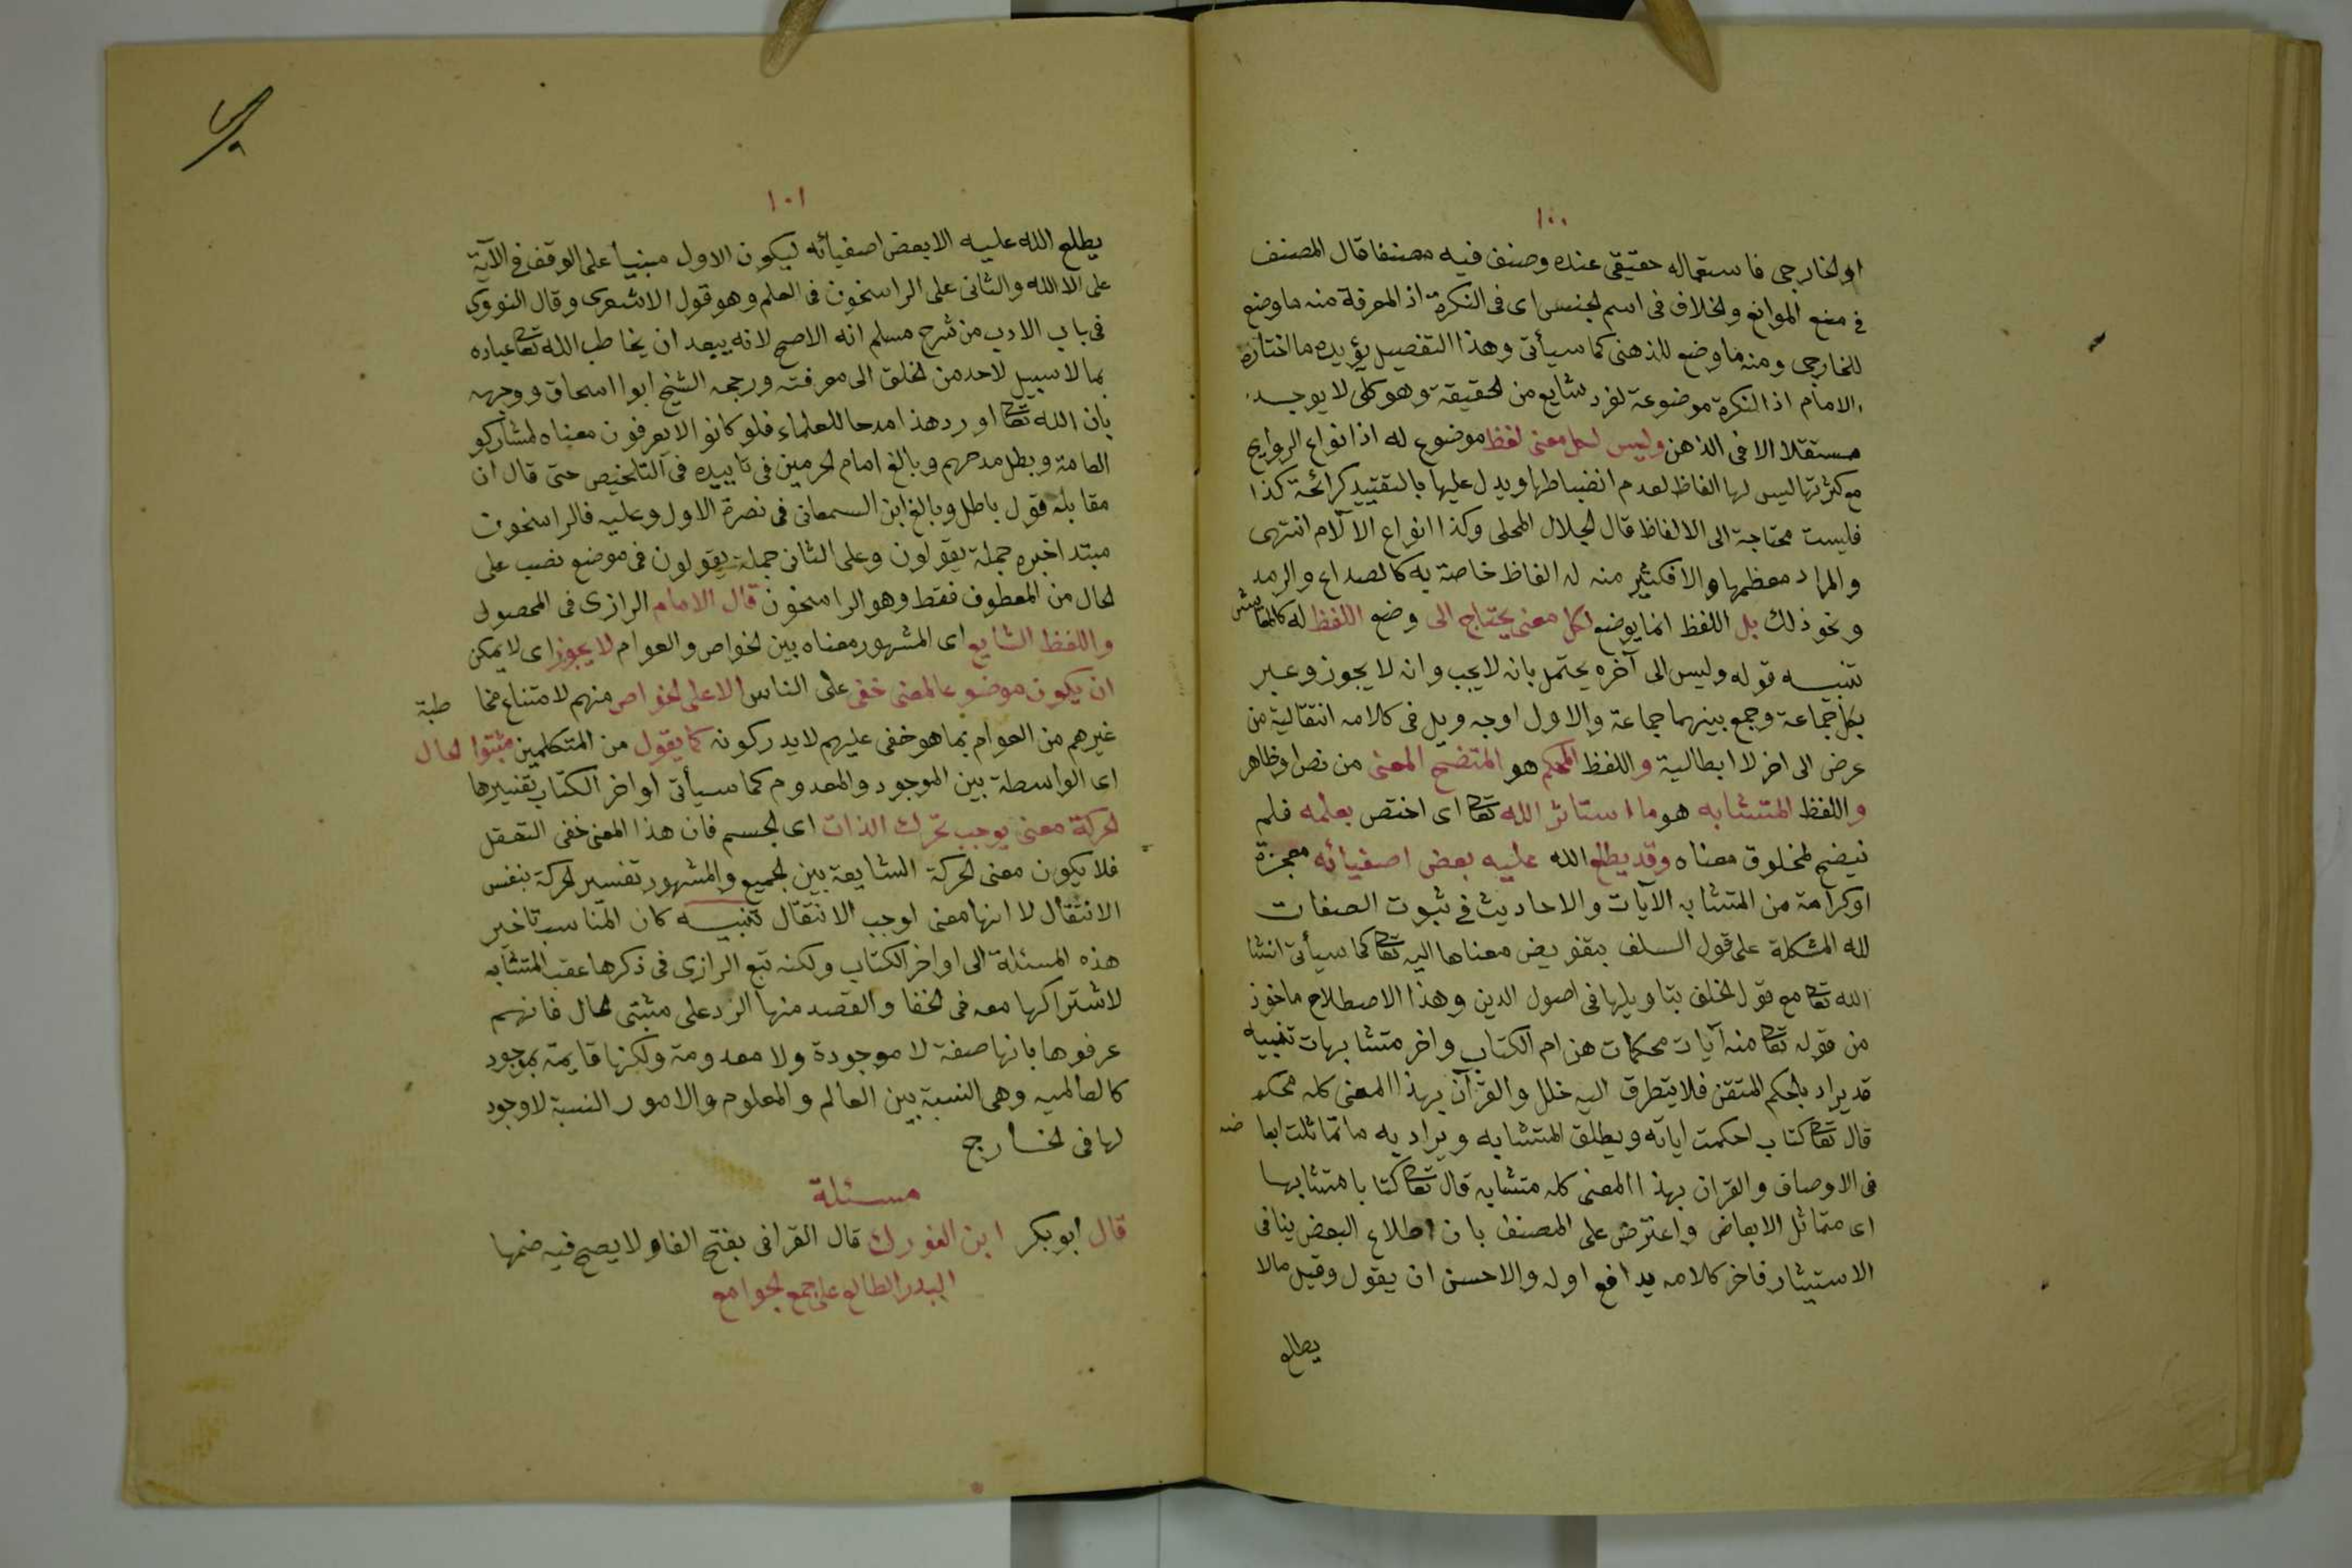 ١٠٠
او الخارجى فاستعماله حقيقى عنده وصنف فيه مصنفا قال المصنف
فى منع الموانع والخلاف فى اسم الجنس اى فى النكرة اذ المعرفة منه ما وضع
للخارجى ومنه ما وضع للذهنى كما سيأتى وهذا التفصيل يؤيده ما اختاره
الامام اذ النكرة موضوعة لفرد شايع من الحقيقة وهو كلى لا يوجد
مستقلا الا فى الذهن وليس لكل معنى لفظ موضوع له اذ انواع الروايح
مع كثرتها ليس لها الفاظ لعدم انضباطها ويدل عليها بالتقييد كرائحة كذا
فليست محتاجة الى الالفاظ قال الجلال المحلى وكذا انواع الآلام انتهى
والمراد معظمها والا فكثير منه له الفاظ خاصة به كالصداع والرمد
ونحو ذلك بل اللفظ انما يوضع لكل معنى يحتاج الى وضع اللفظ له كالمعاش
تنبيه قوله وليس الى آخره يحتمل بانه لا يجب وانه لا يجوز وعبر
بكل جماعة وجمع بينهما جماعة والاول اوجه وبل فى كلامه انتقالية من
غرض الى اخر لا ابطالية واللفظ المحكم هو المتضح المعنى من نص او ظاهر
واللفظ المتشابه هو ما استاثر الله تعالى اى اختص بعلمه فلم
يتضح لمخلوق معناه وقد يطلع الله عليه بعض اصفيائه معجزة
او كرامة من المتشابه الآيات والاحاديث فى ثبوت الصفات
لله المشكلة على قول السلف بتفويض معناها اليه تعالى كما سيأتى انشا
الله تعالى مع قول الخلف بتاويلها فى اصول الدين وهذا الاصطلاح ماخوذ
من قوله تعالى منه آيات محكمات هن ام الكتاب واخر متشابهات تنبيه
قد يراد بالمحكم المتقن فلا يتطرق اليه خلل والقرآن بهذا المعنى كله محكم
قال تعالى كتاب احكمت اياته ويطلق المتشابه ويراد به ما تماثلت ابعا ضه
فى الاوصاف والقران بهذا المعنى كله متشابه قال تعالى كتابا متشابها
اى متماثل الابعاض واعترض على المصنف بان اطلاع البعض ينافى
الاستيثار فاخر كلامه يدافع اوله والاحسن ان يقول وقيل ما لا
يطلع
١٠١
يطلع الله عليه الا بعض اصفيائه ليكون الاول مبنيا على الوقف فى الآية
على الا الله والثانى على الراسخون فى العلم وهو قول الاشعرى وقال النووى
فى باب الادب من شرح مسلم انه الاصح لانه يبعد ان يخاطب الله تعالى عباده
بما لا سبيل لاحد من الخلق الى معرفته ورجحه الشيخ ابو ا اسحاق ووجهه
بان الله تعالى اورد هذا مدحا للعلماء فلو كانوا لا يعرفون معناه لشاركو
العامة وبطل مدحهم وبالغ امام الحرمين فى تاييده فى التلخيص حتى قال ان
مقابله قول باطل وبالغ ابن السمعانى فى نصرة الاول وعليه فالراسخون
مبتدا خبره جملة يقولون وعلى الثانى جملة يقولون فى موضع نصب على
الحال من المعطوف فقط وهو الراسخون قال الامام الرازى فى المحصول
واللفظ الشايع اى المشهور معناه بين الخواص والعوام لا يجوز اى لا يمكن
ان يكون موضوعا لمعنى خفى على الناس الا على الخواص منهم لامتناع مخا طبة
غيرهم من العوام بما هو خفى عليهم لا يدركونه كما يقول من المتكلمين مثبتوا الحال
اى الواسطة بين الموجود والمعدوم كما سيأتى اواخر الكتاب تفسيرها
الحركة معنى يوجب تحرك الذات اى الجسم فان هذا المعنى خفى التعقل
فلا يكون معنى الحركة الشايعة بين الجميع والمشهور تفسير الحركة بنفس
الانتقال لا انها معنى اوجب الانتقال تنبيه كان المناسب تاخير
هذه المسئلة الى اواخر الكتاب ولكنه تبع الرازى فى ذكرها عقب المتشابه
لاشتراكها معه فى الخفا والقصد منها الرد على مثبتى الحال فانهم
عرفوها بانها صفة لا موجودة ولا معدومة ولكنها قايمة بموجود
كالعالميه وهى النسبة بين العالم والمعلوم والامور النسبة لا وجود
لها فى الخارج
مسئلة
قال ابو بكر ابن الفورك قال القرافى بفتح الفاء ولا يصح فيه ضمها
البدر الطالع على جمع الجوامع